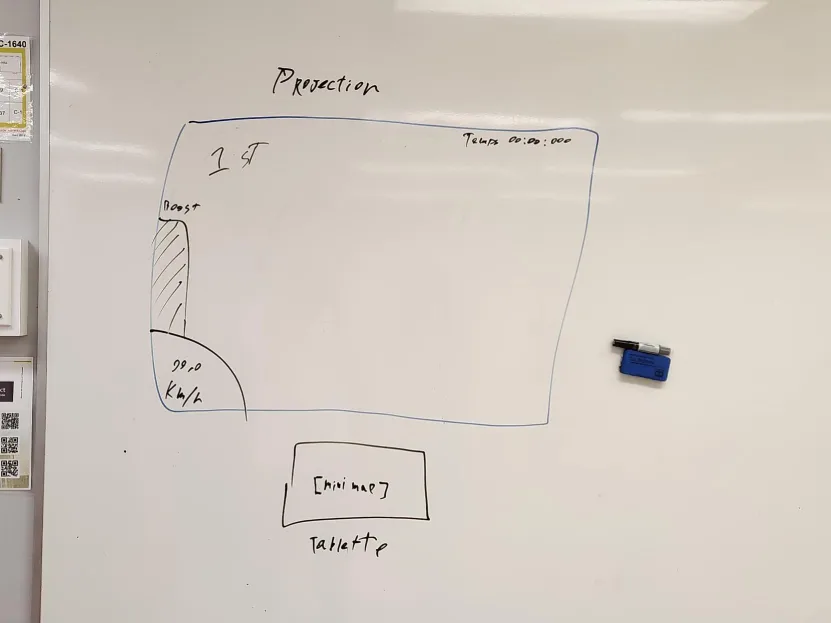 C-1640
Projection
1 ST
Temps 00:00:000
Boost
Km/h
[mini map]
Tablette